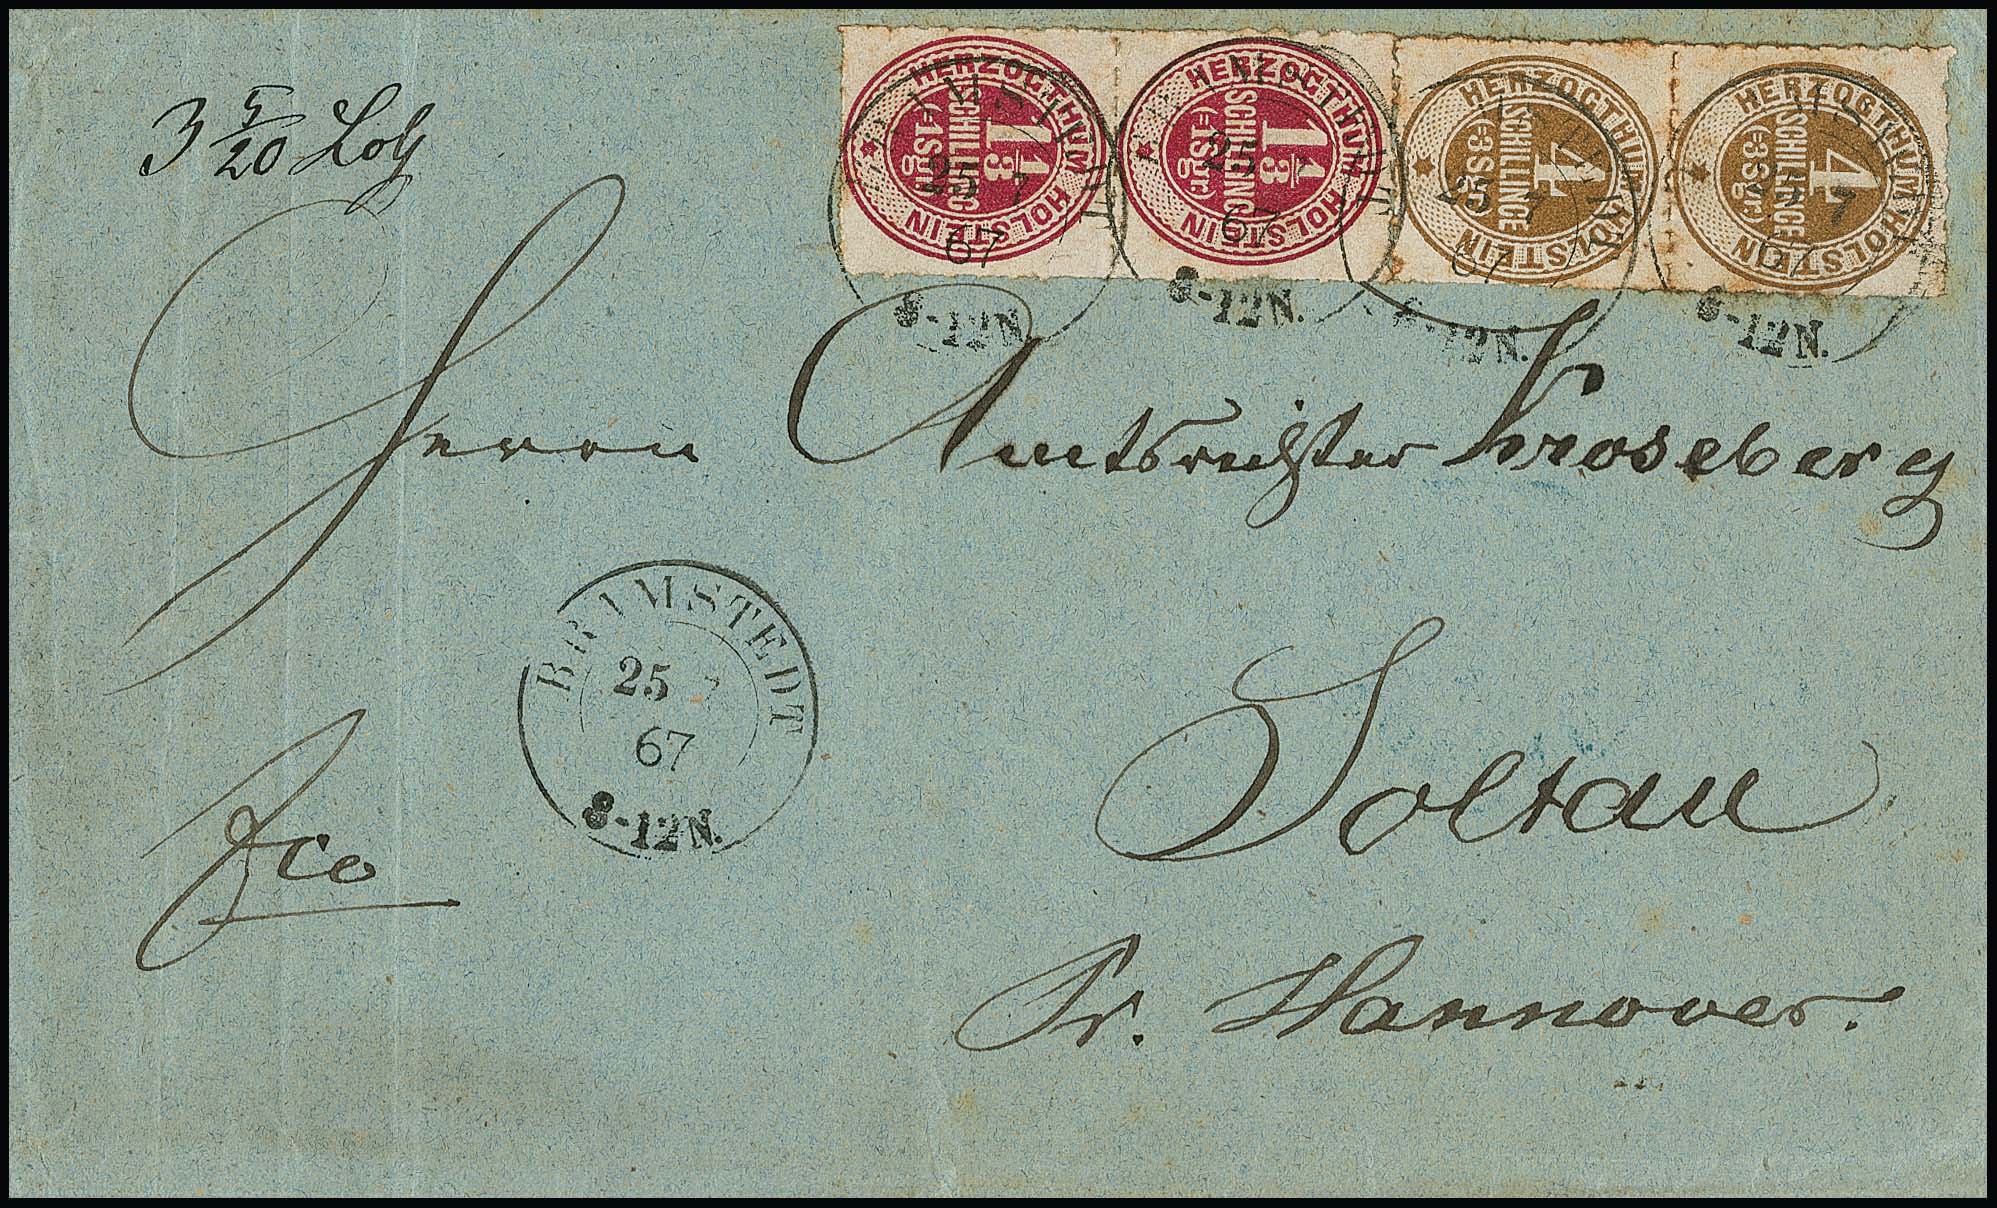 3 5/20 Loth
HERZOGTHUM HOLSTEIN
1 1/3
SCHILLING
=1 Sgr.
HERZOGTHUM HOLSTEIN
1 1/3
SCHILLING
=1 Sgr.
HERZOGTHUM HOLSTEIN
4
SCHILLINGE
=3 Sgr.
HERZOGTHUM HOLSTEIN
4
SCHILLINGE
=3 Sgr.
BRAMSTEDT
25 7
67
8-12N.
25 7
67
8-12N.
25 7
67
8-12N.
25 7
67
8-12N.
Herrn Amtsrichter Kroseberg
BRAMSTEDT
25 7
67
8-12N.
Soltau
Fco
Pr. Hannover.